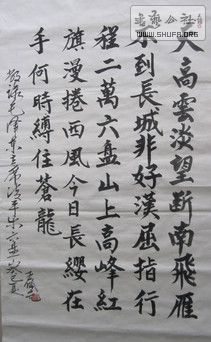 天高雲淡望斷南飛雁
不到長城非好漢屈指行
程二萬六盘山上高峰紅
旗漫捲西風今日長纓在
手何時縛住蒼龍
敬録毛澤東主席清平樂六盘山
WWW.SHUFA.ORG